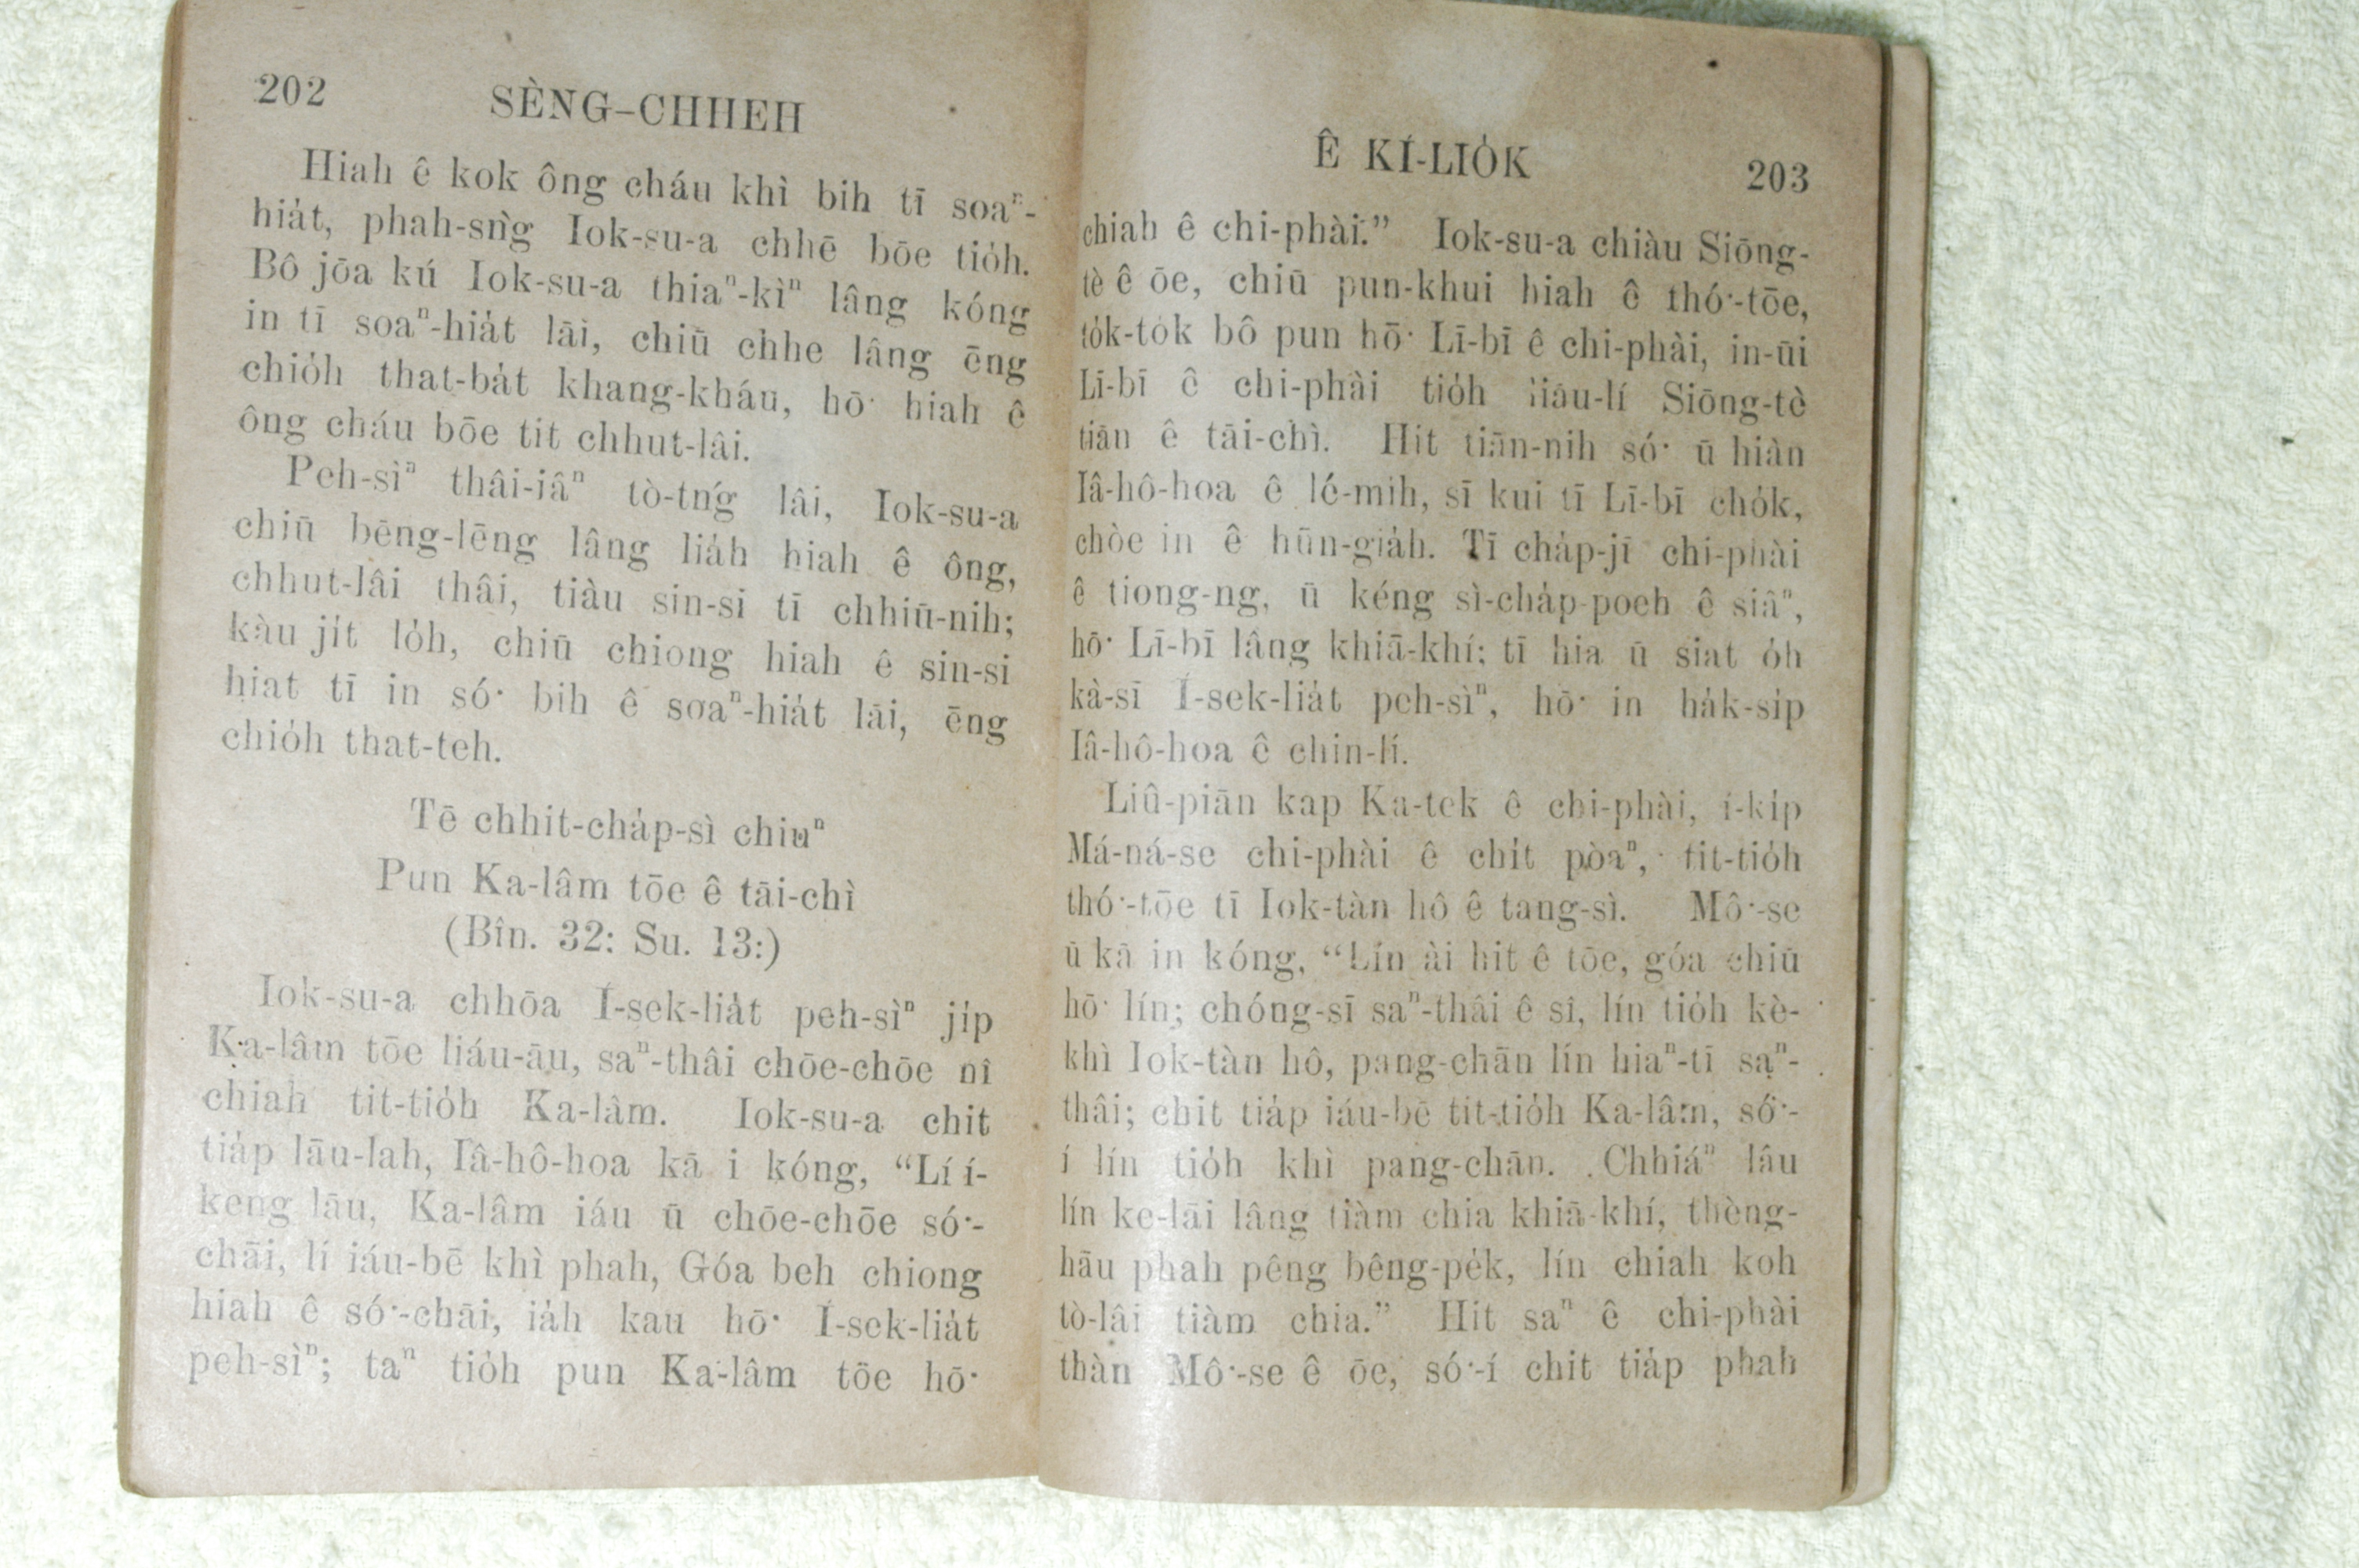 202
SÈNG-CHHEH
Hiah ê kok ông cháu khì bih tī soaⁿ-
hia̍t, phah-sǹg Iok-su-a chhē bōe tio̍h.
Bô jōa kú Iok-su-a thiaⁿ-kìⁿ lâng kóng
in tī soaⁿ-hia̍t lāi, chiū chhe lâng ēng
chio̍h that-ba̍t khang-kháu, hō͘ hiah ê
ông cháu bōe tit chhut-lâi.
Peh-sìⁿ thâi-iâⁿ tò-tńg lâi, Iok-su-a
chiū bēng-lēng lâng lia̍h hiah ê ông,
chhut-lâi thâi, tiàu sin-si tī chhiū-nih;
kàu ji̍t lo̍h, chiū chiong hiah ê sin-si
hiat tī in só͘ bih ê soaⁿ-hia̍t lāi, ēng
chio̍h that-teh.
Tē chhit-cha̍p-sì chiuⁿ
Pun Ka-lâm tōe ê tāi-chì
(Bîn. 32: Su. 13:)
Iok-su-a chhōa Í-sek-lia̍t peh-sìⁿ ji̍p
Ka-lâm tōe liáu-āu, saⁿ-thâi chōe-chōe nî
chiah tit-tio̍h Ka-lâm. Iok-su-a chit
tia̍p lāu-lah, Iâ-hô-hoa kā i kóng, “Lí í-
keng lāu, Ka-lâm iáu ū chōe-chōe só͘-
chāi, lí iáu-bē khì phah, Góa beh chiong
hiah ê só͘-chāi, ia̍h kau hō͘ Í-sek-lia̍t
peh-sìⁿ; taⁿ tio̍h pun Ka-lâm tōe hō͘
Ê KÍ-LIO̍K
203
chiah ê chi-phài.” Iok-su-a chiàu Siōng-
tè ê ōe, chiū pun-khui hiah ê thó͘-tōe,
to̍k-to̍k bô pun hō͘ Lī-bī ê chi-phài, in-ūi
Lī-bī ê chi-phài tio̍h liāu-lí Siōng-tè
tiān ê tāi-chì. Hit tiān-nih só͘ ū hiàn
Iâ-hô-hoa ê lé-mih, sī kui tī Lī-bī cho̍k,
chòe in ê hūn-gia̍h. Tī cha̍p-jī chi-phài
ê tiong-ng, ū kéng sì-cha̍p-poeh ê siâⁿ,
hō͘ Lī-bī lâng khiā-khí; tī hia ū siat o̍h
kà-sī Í-sek-lia̍t peh-sìⁿ, hō͘ in ha̍k-si̍p
Iâ-hô-hoa ê chin-lí.
Liû-piān kap Ka-tek ê chi-phài, í-ki̍p
Má-ná-se chi-phài ê chi̍t pòaⁿ, tit-tio̍h
thó͘-tōe tī Iok-tàn hô ê tang-sì. Mô͘-se
ū kā in kóng, “Lín ài hit ê tōe, góa chiū
hō͘ lín; chóng-sī saⁿ-thâi ê sî, lín tio̍h kè-
khì Iok-tàn hô, pang-chān lín hiaⁿ-tī saⁿ-
thâi; chit tia̍p iáu-bē tit-tio̍h Ka-lâm, só͘-
í lín tio̍h khì pang-chān. Chhiáⁿ lâu
lín ke-lāi lâng tiàm chia khiā-khí, thèng-
hāu phah pêng bêng-pe̍k, lín chiah koh
tò-lâi tiàm chia.” Hit saⁿ ê chi-phài
thàn Mô͘-se ê ōe, só͘-í chit tia̍p phah